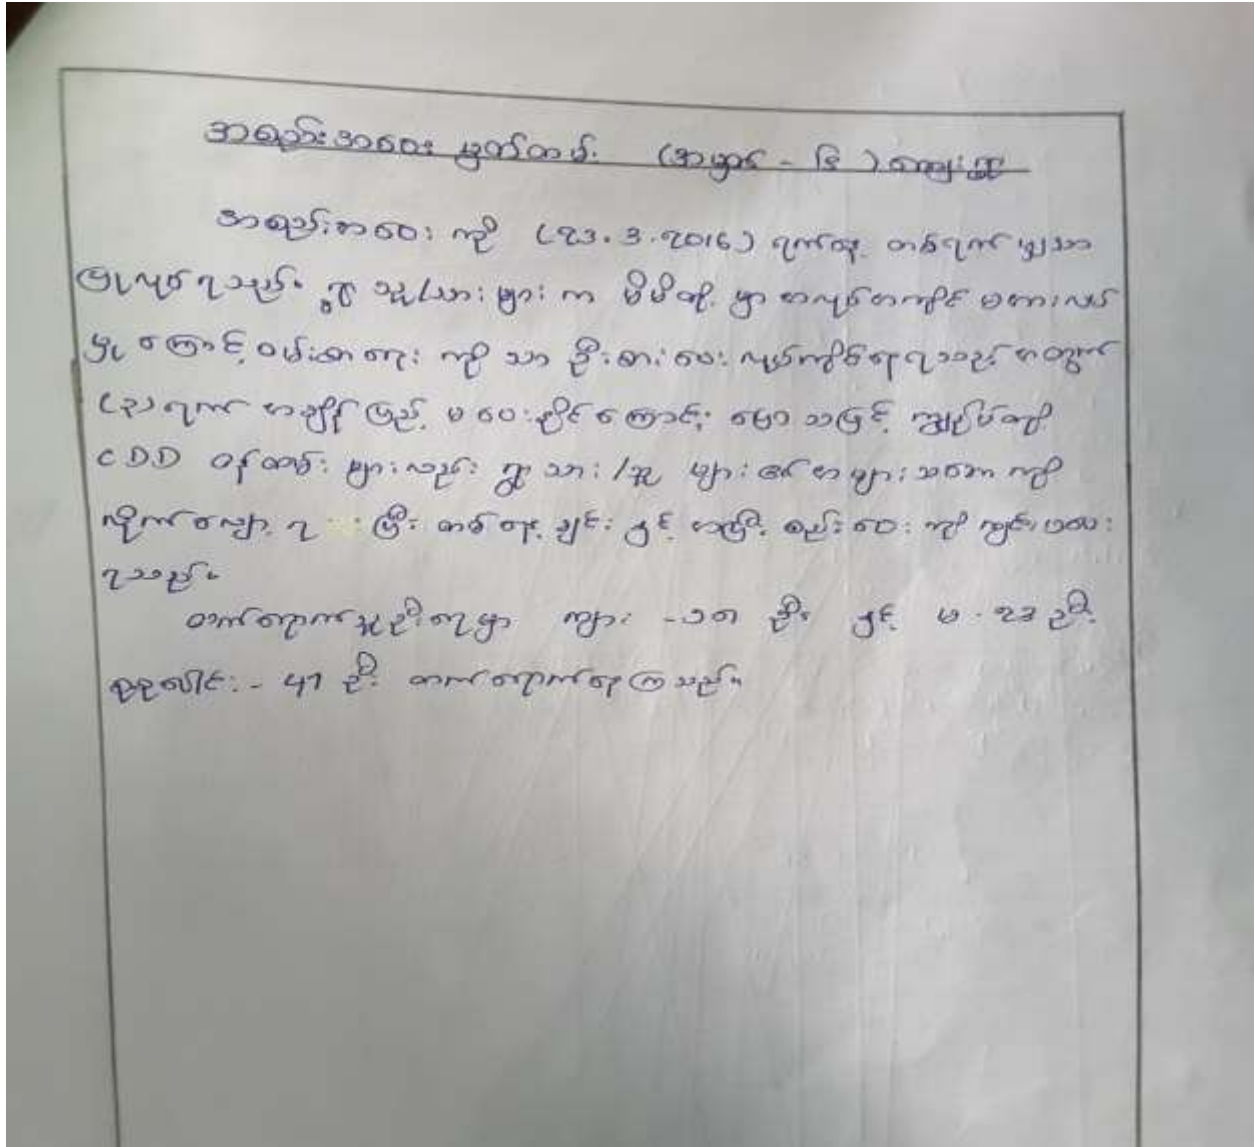 အစည်းအဝေး မှတ်တမ်း (အမှတ် - ၆ ) ကျေးရွာ
အစည်းအဝေး ကို (23.3.2016) ရက်နေ့ တစ်ရက် မျှသာ
ပြုလုပ် ရသည်။ ရွာ သူ/သား များ က မိမိတို့ မှာ အလုပ်အကိုင် မအားလပ်
မှု ကြောင့် ဝမ်းစာရေး ကို သာ ဦးစားပေး လုပ်ကိုင်နေရသည့် အတွက်
(၃) ရက် အချိန် ပြည့် မပေးနိုင် ကြောင်း ပြော သဖြင့် ကျွန်ုပ်တို့
CDD ဝန်ထမ်း များလည်း ရွာ သား /သူ များ ၏ အများ သဘော ကို
လိုက်လျော ရ ပြီး တစ်နေ့ ချင်း နှင့် အပြီး စည်းဝေး ကို ကျင်းပပေး
ရသည်။
တက်ရောက်သူဦးရေမှာ ကျား - ၁၈ ဦး နှင့် မ - ၂၃ ဦး
စုစုပေါင်း - 41 ဦး တက်ရောက်နေကြသည်။